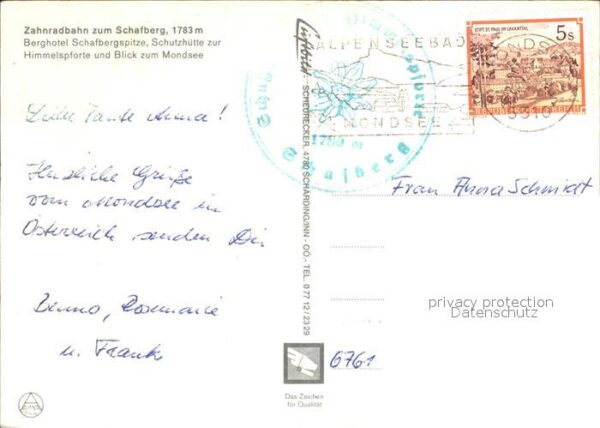 Zahnradbahn zum Schafberg, 1783 m
Berghotel Schafbergspitze, Schutzhütte zur
Himmelspforte und Blick zum Mondsee
Liebe Tante Anna!
Herzliche Grüße
vom Mondsee in
Österreich senden Dir
Benno, Rosemarie
u. Frank
Luftbild
SCHERRECKER, 4780 SCHÄRDING/INN - OÖ.- TEL. 0 77 12 / 23 29
ALPENSEEBAD
MONDSEE
Schafberg
1780 m
STIFT ST. PAUL IM LAVANTTAL
5s
REPUBLIK ÖSTERREICH
5310
Frau Anna Schmidt
privacy protection
Datenschutz
6761
Das Zeichen
für Qualität